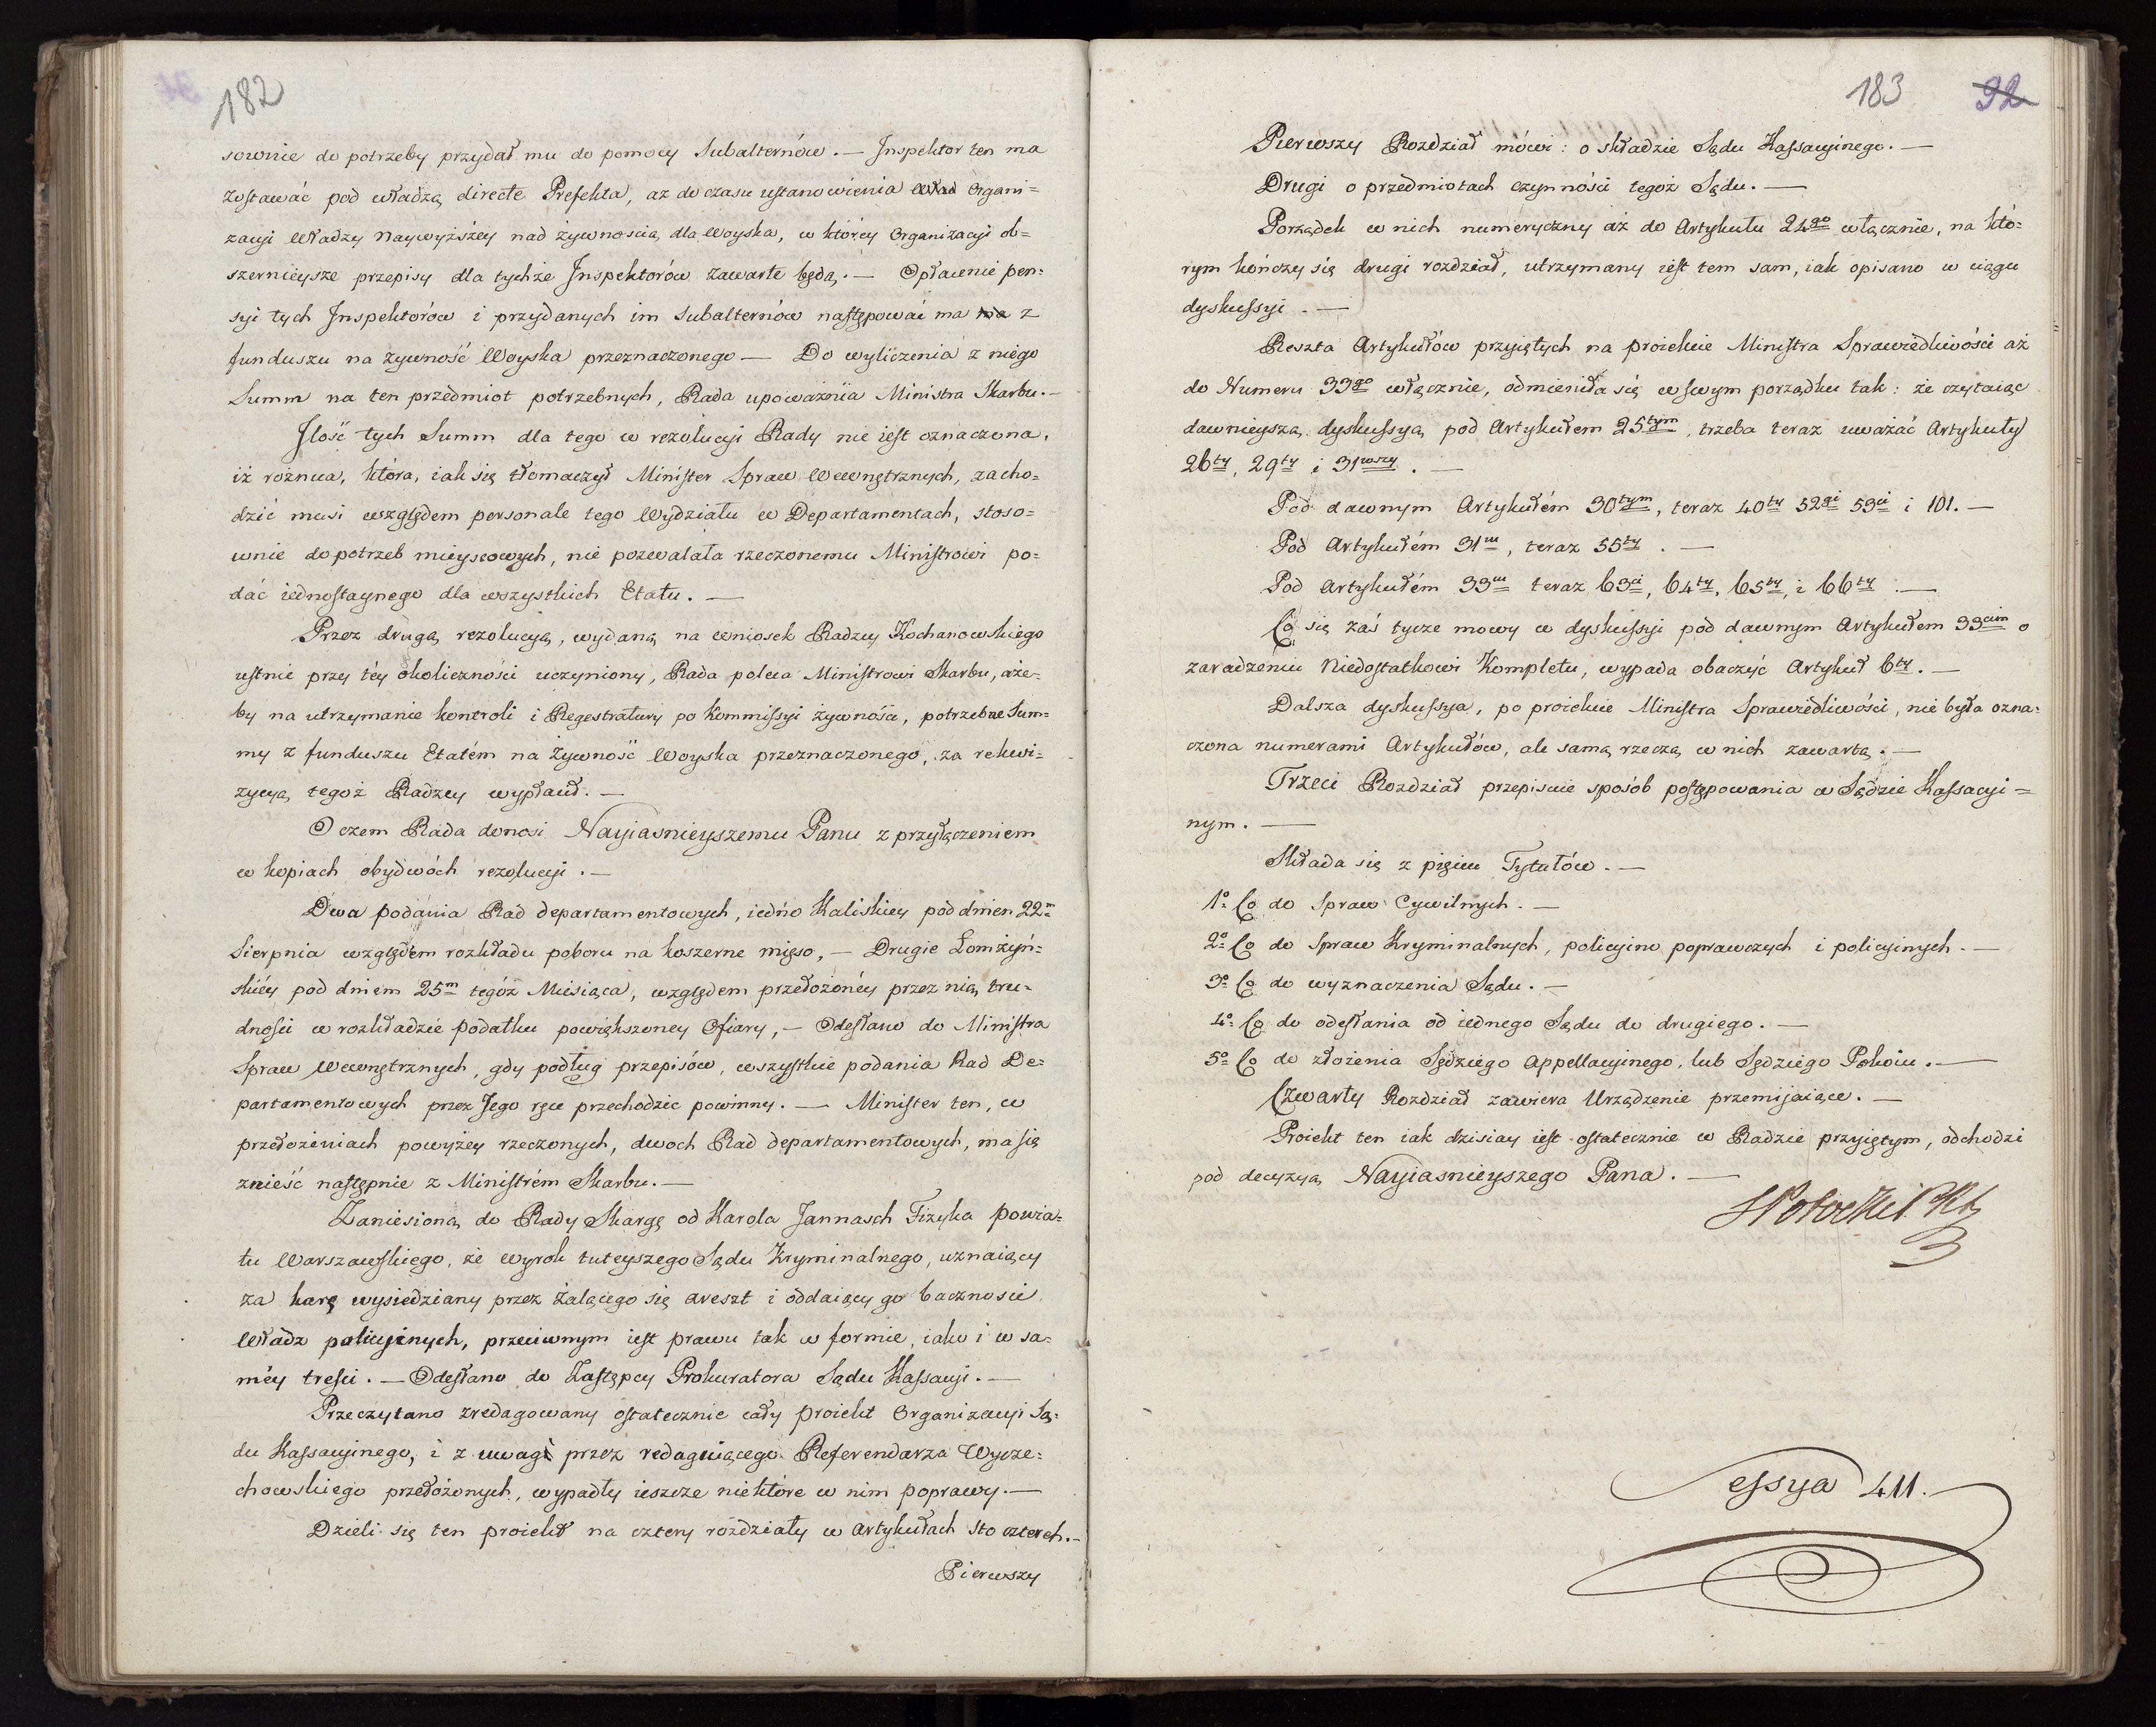 182
sownie do potrzeby przydał mu do pomocy Subalternów. — Inspektor ten ma
zostawać pod władzą directe Prefekta, aż do czasu ustanowienia Organi=
zacyi Władzy Naywyższey nad żywnością dla Woyska, w którey Organizacyi ob=
szernieysze przepisy dla tychże Inspektorów zawarte będą. — Opłacenie pen=
syi tych Inspektorów i przydanych im Subalternów następować ma z
funduszu na żywność Woyska przeznaczonego — Do wyliczenia z niego
Summ na ten przedmiot potrzebnych, Rada upoważnia Ministra Skarbu. —
Ilość tych Summ dla tego w rezolucyi Rady nie iest oznaczona,
iż rożnica, która, iak się tłomaczył Minister Spraw Wewnętrznych, zacho=
dzić musi względem personale tego Wydziału w Departamentach, stoso=
wnie do potrzeb mieyscowych, nie pozwalała rzeczonemu Ministrowi po=
dać iednostaynego dla wszystkich Etatu. —
Przez drugą rezolucyą, wydaną na wniosek Radzcy Kochanowskiego
ustnie przy téy okoliczności uczyniony, Rada poleca Ministrowi Skarbu, aże=
by na utrzymanie kontroli i Regestratury po Kommissyi żywności, potrzebne Sum=
my z funduszu Etatém na Żywność Woyska przeznaczonego, za rekwi=
zycyą tegoż Radzcy wypłacił. —
O czem Rada donosi Nayiasnieyszemu Panu z przyłączeniem
w kopiach obydwóch rezolucyi. —
Dwa podania Rad departamentowych, iedno Kaliskiey pod dniem 22m
Sierpnia względem rozkładu poboru na koszerne mięso, — Drugie Łomżyń=
skiéy pod dniem 25m tegóż Miesiąca, względem przełożonéy przez nią tru=
dności w rozkładzie podatku powiększoney Ofiary, — Odesłano do Ministra
Spraw Wewnętrznych, gdy podług przepisów, wszystkie podania Rad De=
partamentowych przez Jego ręce przechodzic powinny. — Minister ten, w
przełożeniach powyżey rzeczonych, dwoch Rad departamentowych, ma się
znieść następnie z Ministrém Skarbu. —
Zaniesioną do Rady Skargę od Karola Jannasch Fizyka powia=
tu Warszawskiego, że wyrok tuteyszego Sądu Kryminalnego, uznaiący
za karę wysiedziany przez żalącego się areszt i oddaiący go baczności
Władz policyinych, przeciwnym iest prawu tak w formie, iako i w sa=
méy treści. — Odesłano do Zastępcy Prokuratora Sądu Kassacyi. —
Przeczytano zredagowany ostatecznie cały proiekt Organizacyi Są=
du Kassacyinego, i z uwagi przez redaguiącego Referendarza Wycze=
chowskiego przełożonych, wypadły ieszcze niektóre w nim poprawy. —
Dzieli się ten proiekt na cztery rozdziały w artykułach sto czterech. —
Pierwszy
183 92
Pierwszy Rozdział mówi: o składzie Sądu Kassacyinego. —
Drugi o przedmiotach czynności tegoż Sądu. —
Porządek w nich numeryczny aż do Artykułu 24go włącznie, na któ=
rym kończy się drugi rozdział, utrzymany iest tem sam, iak opisano w ciągu
dyskussyi. —
Reszta Artykułów przyiętych na proiekcie Ministra Sprawiedliwości aż
do Numeru 33go włącznie, odmieniła się w swym porządku tak: że czytaiąc
dawnieyszą dyskussyą pod Artykułem 25tym, trzeba teraz uważać Artykuły
26ty, 29ty i 31wszy. —
Pod dawnym Artykułém 30tym, teraz 40ty 52gi 53ci i 101. —
Pod Artykułém 31m, teraz 55ty. —
Pod Artykułém 33m teraz 63ci, 64ty, 65ty, i 66ty. —
Co się zaś tycze mowy w dyskussyi pod dawnym Artykułem 33cim o
zaradzeniu Niedostatkowi Kompletu, wypada obaczyć Artykuł 6ty. —
Dalsza dyskussya, po proiekcie Ministra Sprawiedliwości, nie była ozna=
czona numerami Artykułów, ale samą rzeczą w nich zawartą. —
Trzeci Rozdział przepisuie sposób postępowania w Sądzie Kassacyi=
nym. —
Składa się z pięciu Tytułów. —
1o Co do Spraw Cywilnych. —
2o Co do Spraw Kryminalnych, policyino poprawczych i policyinych. —
3o Co do wyznaczenia Sądu. —
4o Co do odesłania od iednego Sądu do drugiego. —
5o Co do złożenia Sędziego Appellacyinego, lub Sędziego Pokoiu. —
Czwarty Rozdział zawiera Urządzenie przemijaiące. —
Proiekt ten iak dzisiay iest ostatecznie w Radzie przyiętym, odchodzi
pod decyzyą Nayiasnieyszego Pana. —
Sessya 411.